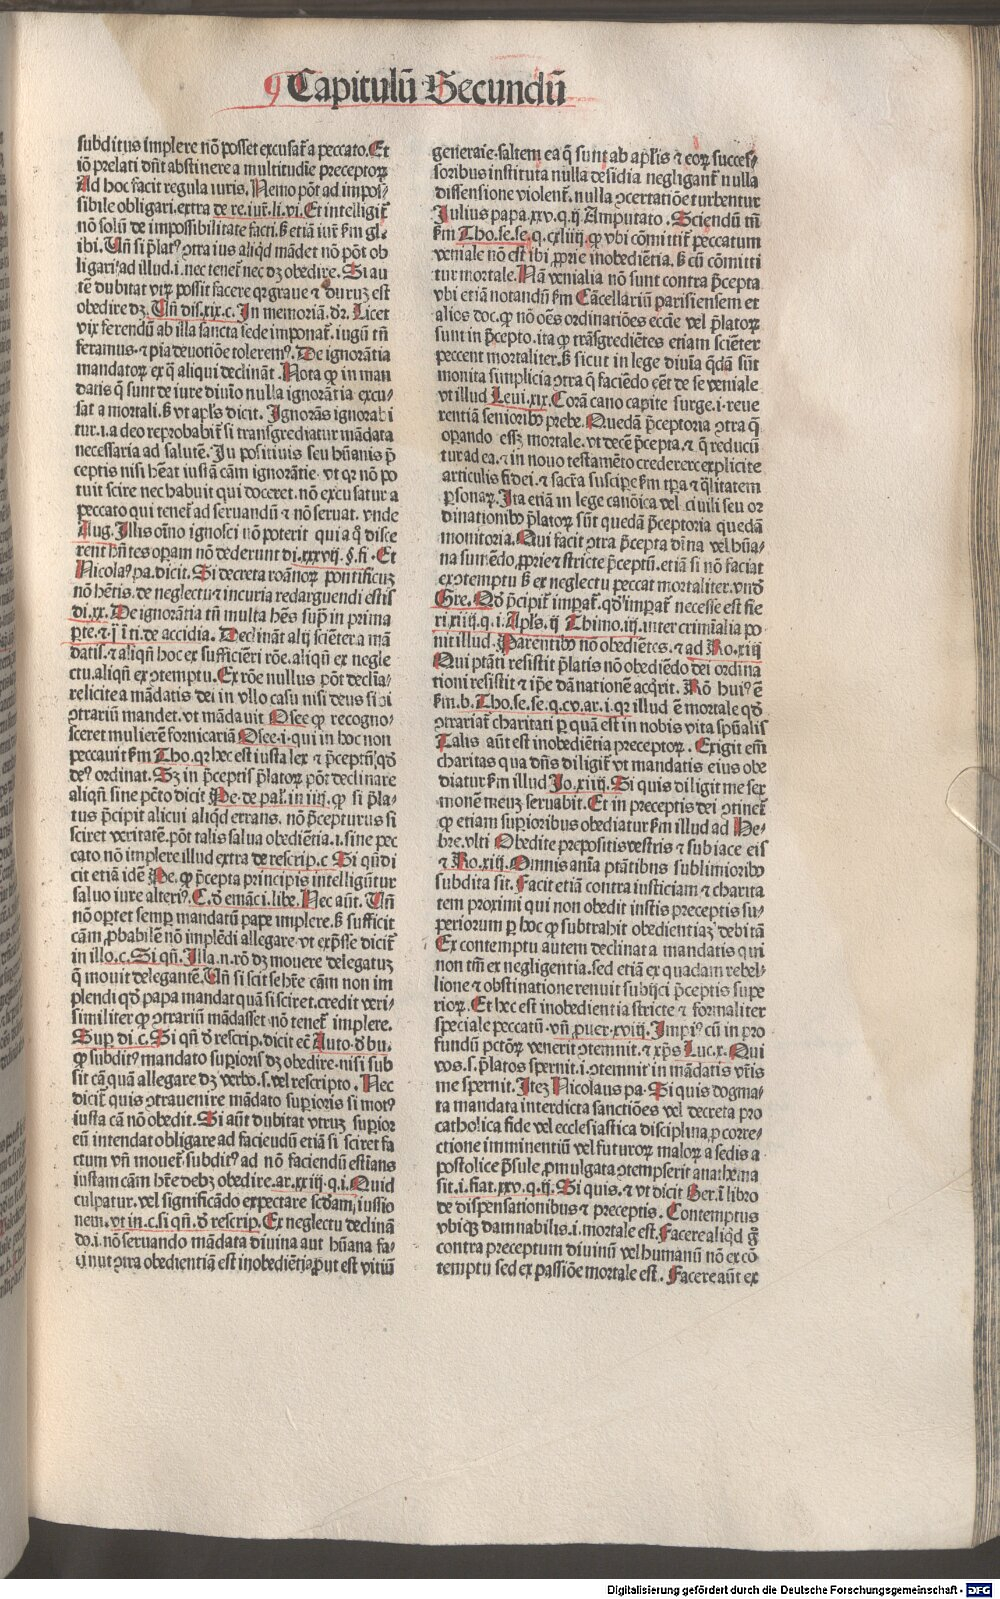 Capitulū Secundū
subditus implere nō posset excusat̄ a peccato. Et
iō prelati dn̄t abstinere a multitudīe preceptoꝝ
Ad hoc facit regula iuris. Nemo pōt ad impos/
sibile obligari. extra de re. iur̄. li. vi. Et intelligit̄
nō solū de impossibilitate facti. sꝫ etiā iur̄ ẜm gl.
ibi. Un̄ si p̄latꝰ ꝯtra ius aliqd mādet nō pōt ob
ligari ad illud. i. nec tenet̄ nec dꝫ obedire. Si au
tē dubitat vtꝝ possit facere qꝛ graue ⁊ duruꝫ est
obedire dꝫ. Un̄ dis. xix. c. In memoriā. dr̄. Licet
vix ferendū ab illa sancta sede imponat̄. iugū tn̄
feramus. ⁊ pia deuotiōe toleremꝰ. De ignorātia
mandatoꝝ ex q̄ aliqui declināt. Nota ꝙ in man
datis q̄ sunt de iure diuīo nulla ignorātia excu/
sat a mortali. sꝫ vt apl̄s dicit. Ignorās ignorabi
tur. i. a deo reprobabit̄ si transgrediatur mādata
necessaria ad salutē. In positiuis seu hūanis p̄
ceptis nisi hēat iustā cām ignorātie. vt qꝛ nō po
tuit scire nec habuit qui doceret. nō excusatur a
peccato qui tenet̄ ad seruandū ⁊ nō seruat. vnde
Aug. Illis oīno ignosci nō poterit qui a q̄ disce
rent hn̄tes oꝑam nō dederunt di. xxxvij. §. fi. Et
Nicolaꝰ pa. dicit. Si decreta roānoꝝ pontificuꝫ
nō hētis. de neglectu ⁊ incuria redarguendi estis
di. xx. De ignorātia tn̄ multa hēs supͣ in prima
ꝑte. ⁊ ī ti. de accidia. Declināt alij sciēter a mā
datis. ⁊ aliqn̄ hoc ex sufficiēri rōe. aliqn̄ ex negle
ctu. aliqn̄ ex ꝯtemptu. Ex rōe nullus pōt declia/
re licite a mādatis dei in vllo casu nisi deus sibi
ꝯtrariū mandet. vt mādauit Osee ꝙ recogno/
sceret mulierē fornicariā Osee. i. qui in hoc non
peccauit ẜm Tho. qꝛ hec est iusta lex ⁊ p̄ceptū qd̄
deꝰ ordinat. Sꝫ in p̄ceptis p̄latoꝝ pōt declinare
aliqn̄ sine pctō dicit Pe. de pal. in iiij. ꝙ si p̄la/
tus p̄cipit alicui aliqd errans. nō p̄cepturus si
sciret veritatē. pōt talis salua obediētia. i. sine pec
cato nō implere illud extra de rescrip. c Si qn̄ di
cit etiā idē Pe. ꝙ p̄cepta principis intelligūtur
saluo iure alterꝰ. C. d̄ emāc̄i. libe. Nec aūt. Un̄
nō oꝑtet semꝑ mandatū pape implere. sꝫ sufficit
cām ꝓbabilē nō implēdi allegare. vt exp̄sse dicit̄
in illo. c. Si qn̄. Illa. n. rō dꝫ mouere delegatuꝫ
q̄ mouit delegantē. Un̄ si scit se hr̄e cām non im
plendi qd̄ papa mandat quā si sciret. credit veri/
similiter ꝙ ꝯtrariū mādasset nō tenet̄ implere.
Suꝑ di. c. Si qn̄ d̄ rescrip. dicit etc̄ Anto. d̄ bu.
ꝙ subditꝰ mandato suꝑioris dꝫ obedire. nisi sub
sit cā quā allegare dꝫ verbo. s. vel rescripto. Nec
dicit̄ quis ꝯtrauenire mādato suꝑioris si motꝰ
iusta cā nō obedit. Si aūt dubitat vtrus suꝑior
eū intendat obligare ad faciendū etiā si sciret fa
ctum vn̄ mouet̄. subditꝰ ad nō faciendū estīans
iustam cām hr̄e debꝫ obedire. ar. xxiij. q. i. Quid
culpatur. vel significādo expectare scd̄am iussio
nem. vt in. c. si qn̄. d̄ rescrip. Ex neglectu declinā
do. i. nō seruando mādata diuina aut hūana fa/
ciunt ꝯtra obedientiā est inobediētia ꝓut est vitiū
generale. saltem ea q̄ sunt ab apl̄is ⁊ eoꝝ succes/
soribus instituta nulla desidia negligant̄ nulla
dissensione violent̄. nulla ꝯcertatiōe turbentur
Julius papa. xxv. q. ij Amputato. Sciendū tn̄
ẜm Tho. se. se. q. cxliiij. ꝙ vbi cōmittit̄ peccatum
veniale nō est ibi ꝓprie inobediētia. sꝫ cū cōmitti
tur mortale. Nā venialia nō sunt contra p̄cepta
vbi etiā notandū ẜm Cācellariū parisiensem et
alios doc. ꝙ nō oēs ordinatiōes eccīe vel p̄latoꝝ
sunt in p̄cepto. ita ꝙ trāsgrediētes etiam sciēter
peccent mortaliter. sꝫ sicut in lege diuīa q̄dā sūt
monita simplicia ꝯtra q̄ faciēdo ēet de se veniale
vt illud Leui. xix. Corā cano capite surge. i. reue
rentiā senioribꝰ prebe. Quedā p̄ceptoria ꝯtra q̄
oꝑando esset mortale. vt decē p̄cepta. ⁊ q̄ reducū
tur ad ea. ⁊ in nouo testamēto credere explicite
articulis fidei. ⁊ sacr̄a suscipe ẜm tꝑa ⁊ q̄litatem
ꝑsonaꝝ. Ita etiā in lege canōica vel ciuili seu or
dinationibꝰ p̄latoꝝ sūt quedā p̄ceptoria quedā
monitoria. Qui facit ꝯtra p̄cepta diuīa vel hūa/
na sumēdo ꝓprie ⁊ stricte p̄ceptū. etiā si nō faciat
ex ꝯtemptu sꝫ ex neglectu peccat mortaliter. vnd̄
Gre. Qd̄ p̄cipit̄ imꝑat̄. qd̄ imꝑat̄ necesse est fie
ri. xiiij. q. i. Apl̄s. ij Thimo. iij. inter crimīalia po
nit illud. Parentibꝰ nō obediētes. ⁊ ad Ro. xiij
Qui ptāti resistit p̄latis nō obediēdo dei ordina
tioni resistit ⁊ ip̄e dānationē acq̄rit. Rō huiꝰ ē
ẜm. b. Tho. se. se. q. cv. ar. i. qꝛ illud ē mortale qd̄
ꝯtrariat̄ charitati ꝑ quā est in nobis vita spūalis
Talis aūt est inobediētia preceptoꝝ. Exigit em̄
charitas qua dn̄s diligit̄ vt mandatis eius obe
diatur ẜm illud Jo. xiiij. Si quis diligit me ser
monē meuꝫ seruabit. Et in preceptis dei ꝯtinet̄
ꝙ etiam suꝑioribus obediatur ẜm illud ad He/
bre. vlti Obedite prepositis vestris ⁊ subiace eis
⁊ Ro. xiij. Omnis anīa ptātibus sublimioribꝰ
subdita sit. Facit etiā contra iusticiam ⁊ charita
tem proximi qui non obedit iustis preceptis su/
periorum ꝑ hoc ꝙ subtrahit obedientiaꝫ debitā
Ex contemptu autem declinat a mandatis qui
non tm̄ ex negligentia. sed etiā ex quadam rebel/
lione ⁊ obstinatione renuit subijci p̄ceptis supe
rioꝝ. Et hec est inobedientia stricte ⁊ formaliter
speciale peccatū. vn̄ ꝓuer. xviij. Impiꝰ cū in pro
fundū pctōꝝ venerit ꝯtemnit. ⁊ xp̄s Luc. x. Qui
vos. s. p̄latos spernit. i. ꝯtemnit in mādatis vr̄is
me spernit. Iteꝫ Nicolaus pa. Si quis dogma/
ta mandata interdicta sanctiōes vel decreta pro
catholica fide vel ecclesiastica disciplina. ꝓ corre/
ctione imminentiū vel futuroꝝ maloꝝ a sedis a
postolice p̄sule ꝓmulgata ꝯtempserit anathema
sit. i. fiat. xxv. q. ij. Si quis. ⁊ vt dicit Ber. ī libro
de dispensationibus ⁊ preceptis. Contemptus
vbiqꝫ damnabilis. i. mortale est. Facere aliqd g̊
contra preceptum diuinū vel humanū nō ex cō
temptu sed ex passiōe mortale est. Facere aūt ex
Digitalisierung gefördert durch die Deutsche Forschungsgemeinschaft - DFG